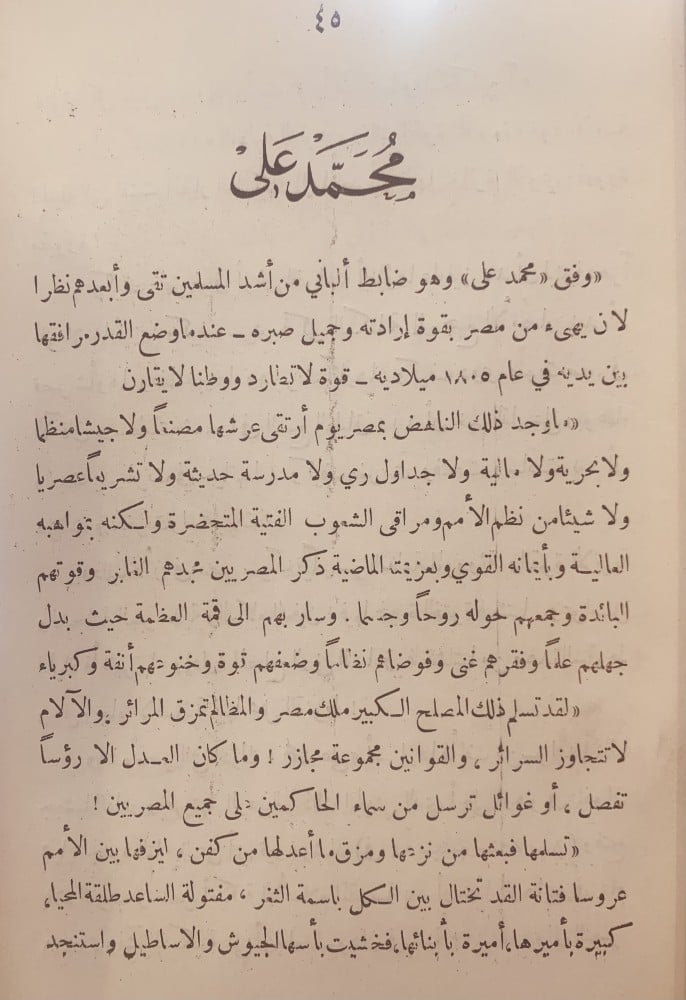 ٤٥
مُحَمَّد عَلى
«وفق «محمد على» وهو ضابط ألباني من أشد المسلمين تقى وأبعدهم نظرا
لان يهىء من مصر بقوة إرادته وجميل صبره ــ عندما وضع القدر مرافقها
بين يديه في عام ١٨٠٥ ميلاديه ــ قوة لا تطارد ووطنا لا يقارن
«ما وجد ذلك الناهض بمصر يوم أرتقى عرشها مصنعاً ولا جيشا منظما
ولا بحرية ولا مالية ولا جداول ري ولا مدرسة حديثة ولا تشريعاً عصريا
ولا شيئا من نظم الأمم ومراقى الشعوب الفتية المتحضرة ولكنه بمواهبه
العالية وبأيمانه القوي وبعزيمته الماضية ذكر المصريين مجدهم الغابر وقوتهم
البائدة وجمعهم حوله روحاً وجسما . وسار بهم الى قمة العظمة حيث بدل
جهلهم علماً وفقرهم غنى وفوضاهم نظاماً وضعفهم قوة وخنوعهم أنفة وكبرياء
«لقد تسلم ذلك المصلح الكبير ملك مصر والمظالم تمزق المرائر ، والآلام
لا تتجاوز السرائر ، والقوانين مجموعة مجازر ! وما كان العدل الا رؤساً
تفصل ، أو غوائل ترسل من سماء الحاكمين على جميع المصريين !
«تسلمها فبعثها من نزعها ومزق ما أعدلها من كفن ، ليزفها بين الأمم
عروسا فتانة القد تختال بين الكل باسمة الثغر ، مفتولة الساعد طلقة المحيا،
كبيرة بأميرها، أميرة بأبنائها، فخشيت بأسها الجيوش والاساطيل واستنجد